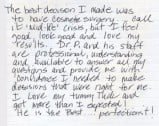 The best decision I made was
to have cosmetic surgery, I call
it "mid-life" crisis, but I feel
good, look good and love my
results. Dr. P. and his staff
are professional, understanding
and available to answer all my
questions and provide me with
confidence I needed to make
decisions that were right for me.
I love my tummy tuck and
got more than I expected!
He is the Best perfectionist!